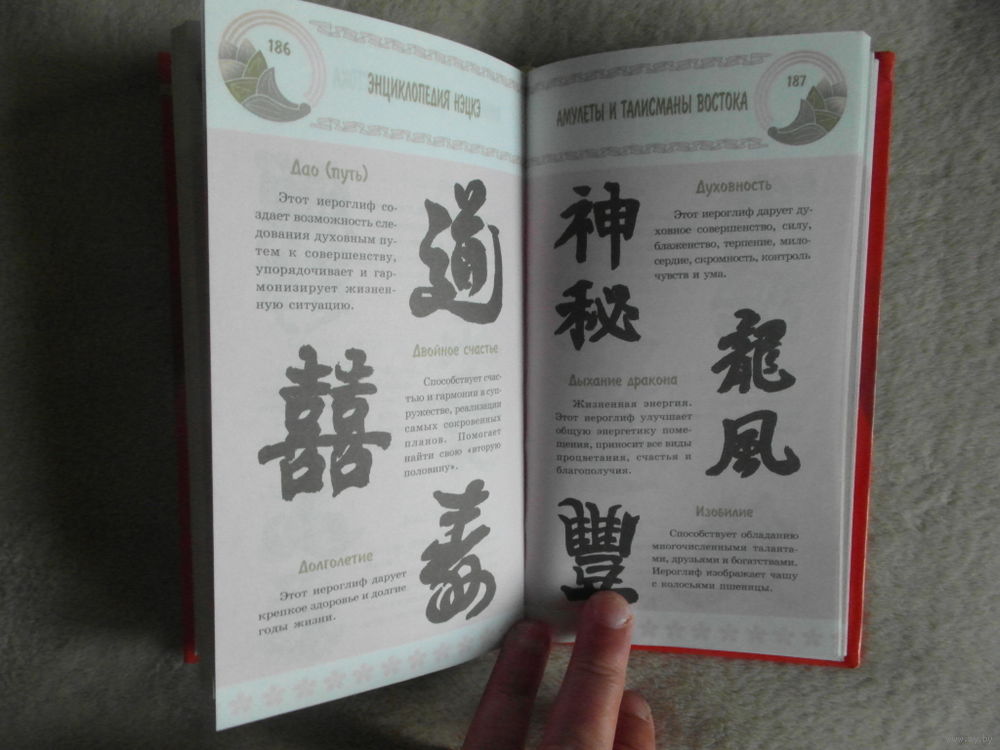 186
ЭНЦИКЛОПЕДИЯ НЭЦКЭ
Дао (путь)
Этот иероглиф со-
здает возможность сле-
дования духовным пу-
тем к совершенству,
упорядочивает и гар-
монизирует жизнен-
ную ситуацию.
道
Двойное счастье
Способствует счас-
тью и гармонии в суп-
ружестве, реализации
самых сокровенных
планов. Помогает
найти свою «вторую
половину».
囍
Долголетие
Этот иероглиф дарует
крепкое здоровье и долгие
годы жизни.
寿
187
АМУЛЕТЫ И ТАЛИСМАНЫ ВОСТОКА
神
秘
Духовность
Этот иероглиф дарует ду-
ховное совершенство, силу,
блаженство, терпение, мило-
сердие, скромность, контроль
чувств и ума.
Дыхание дракона
Жизненная энергия.
Этот иероглиф улучшает
общую энергетику поме-
щения, приносит все виды
процветания, счастья и
благополучия.
龍
風
豐
Изобилие
Способствует обладанию
многочисленными таланта-
ми, друзьями и богатствами.
Иероглиф изображает чашу
с колосьями пшеницы.